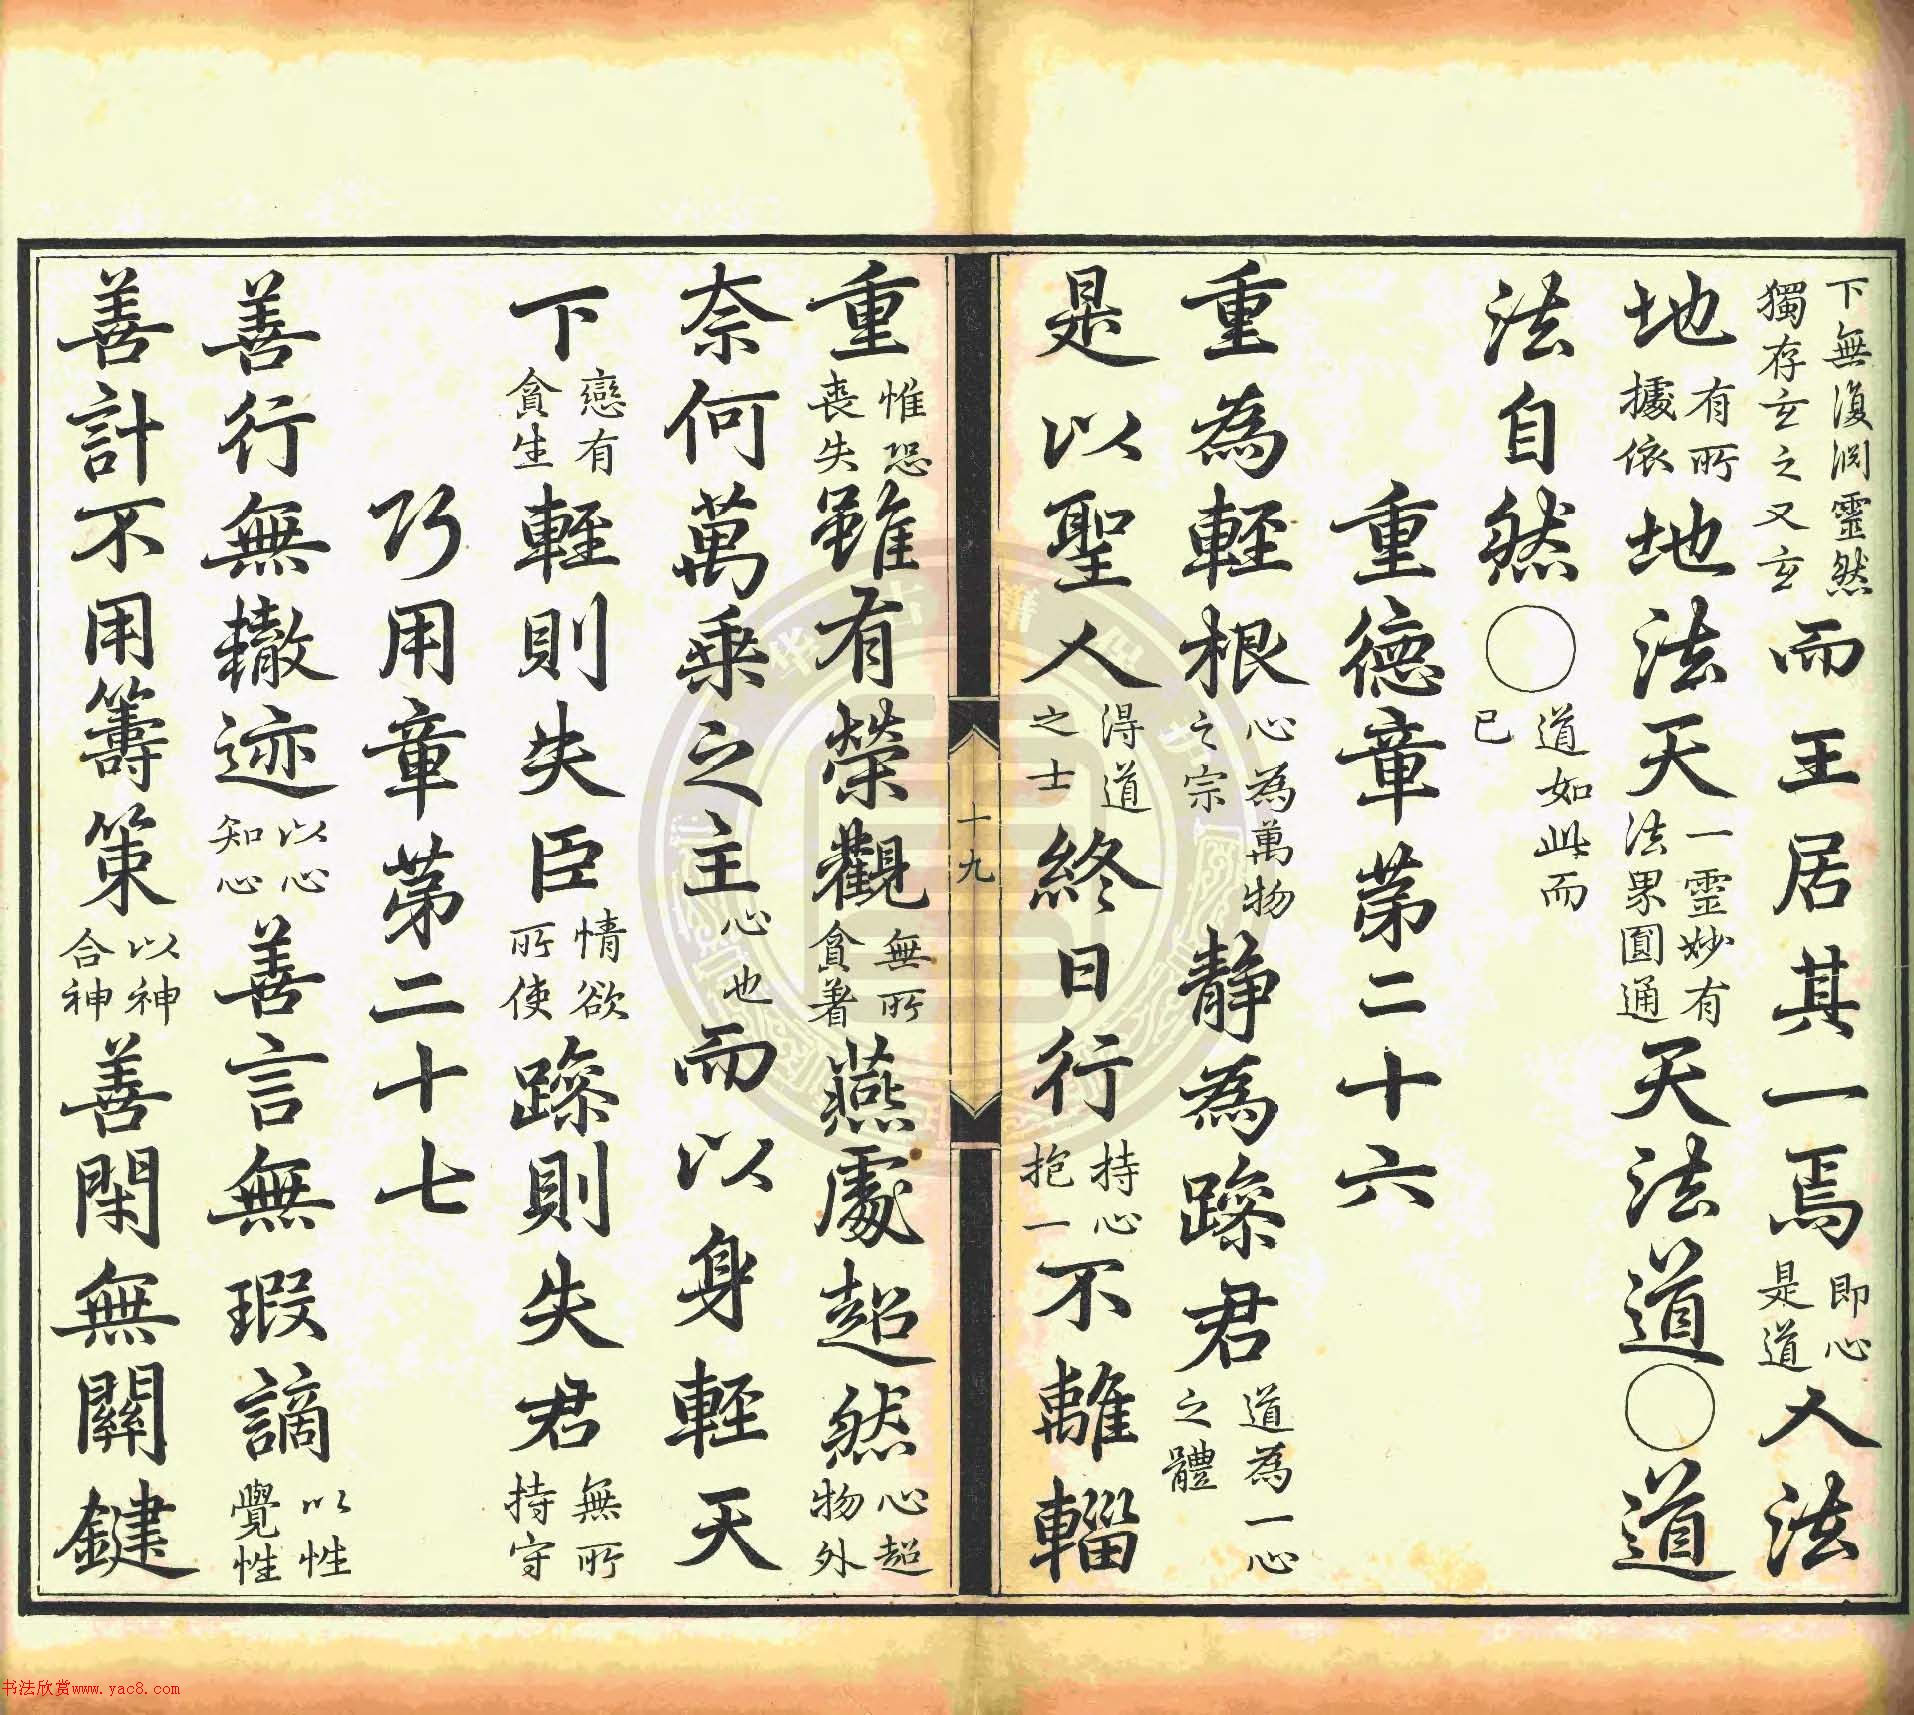 下無復靈然獨存玄之又玄而王居其一焉即心是道人法
地有所據依地法天一靈妙有法界圓通天法道〇道
法自然〇道如此而已
重德章第二十六
重為輕根心為萬物之宗靜為躁君道為一心之體
是以聖人得道之士終日行持心抱一不離輜
十九
重惟恐喪失雖有榮觀無所貪著燕處超然心超物外
奈何萬乘之主心也而以身輕天
下戀有貪生輕則失臣情欲所使躁則失君無所持守
巧用章第二十七
善行無轍迹以心知心善言無瑕謫以性覺性
善計不用籌策以神合神善閉無關鍵
书法欣赏www.yac8.com